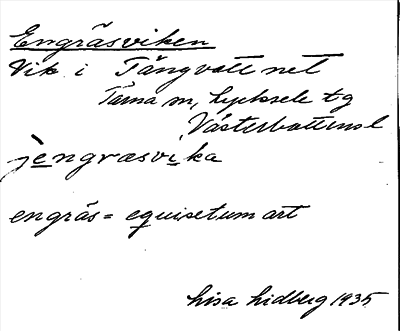 Engräsviken
Vik i Tängvattnet
Tärna sn, Lycksele tg
Västerbottensl
jengræsvika
engräs = equisetum art
Lisa Lidberg 1935